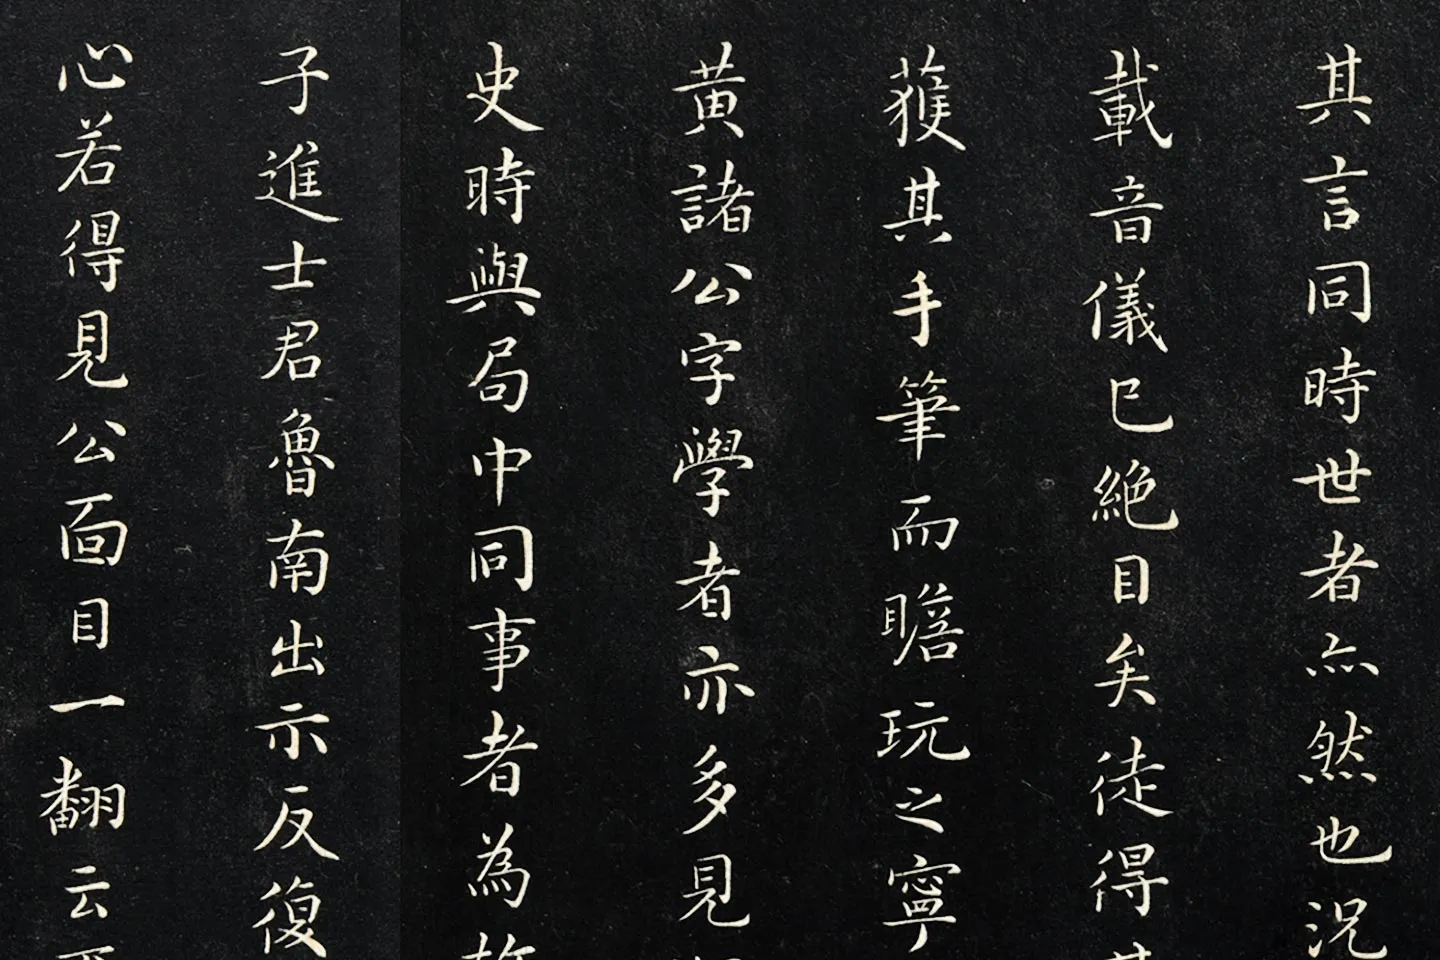 其言同時世者亦然也況
載音儀已絕目矣徒得
獲其手筆而瞻玩之寧
黄諸公字學者亦多見
史時與局中同事者為
子進士君魯南出示反復
心若得見公面目一翻云